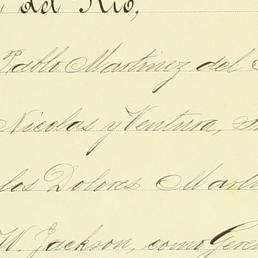 del Rio,
Pablo Martinez del
Nicolas y Ventura,
los Dolores Mart
W. Jackson, como Geren